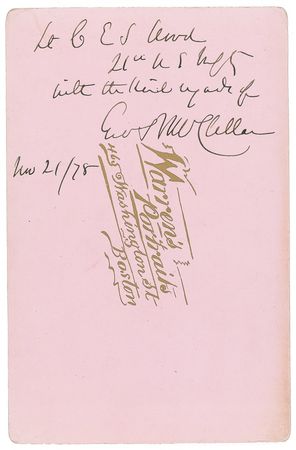 Lt C E S Wood
21st U S Infty
with the kind regards of
Geo B McClellan
Nov 21/78
Warren's
Portraits
465 Washington St
Boston